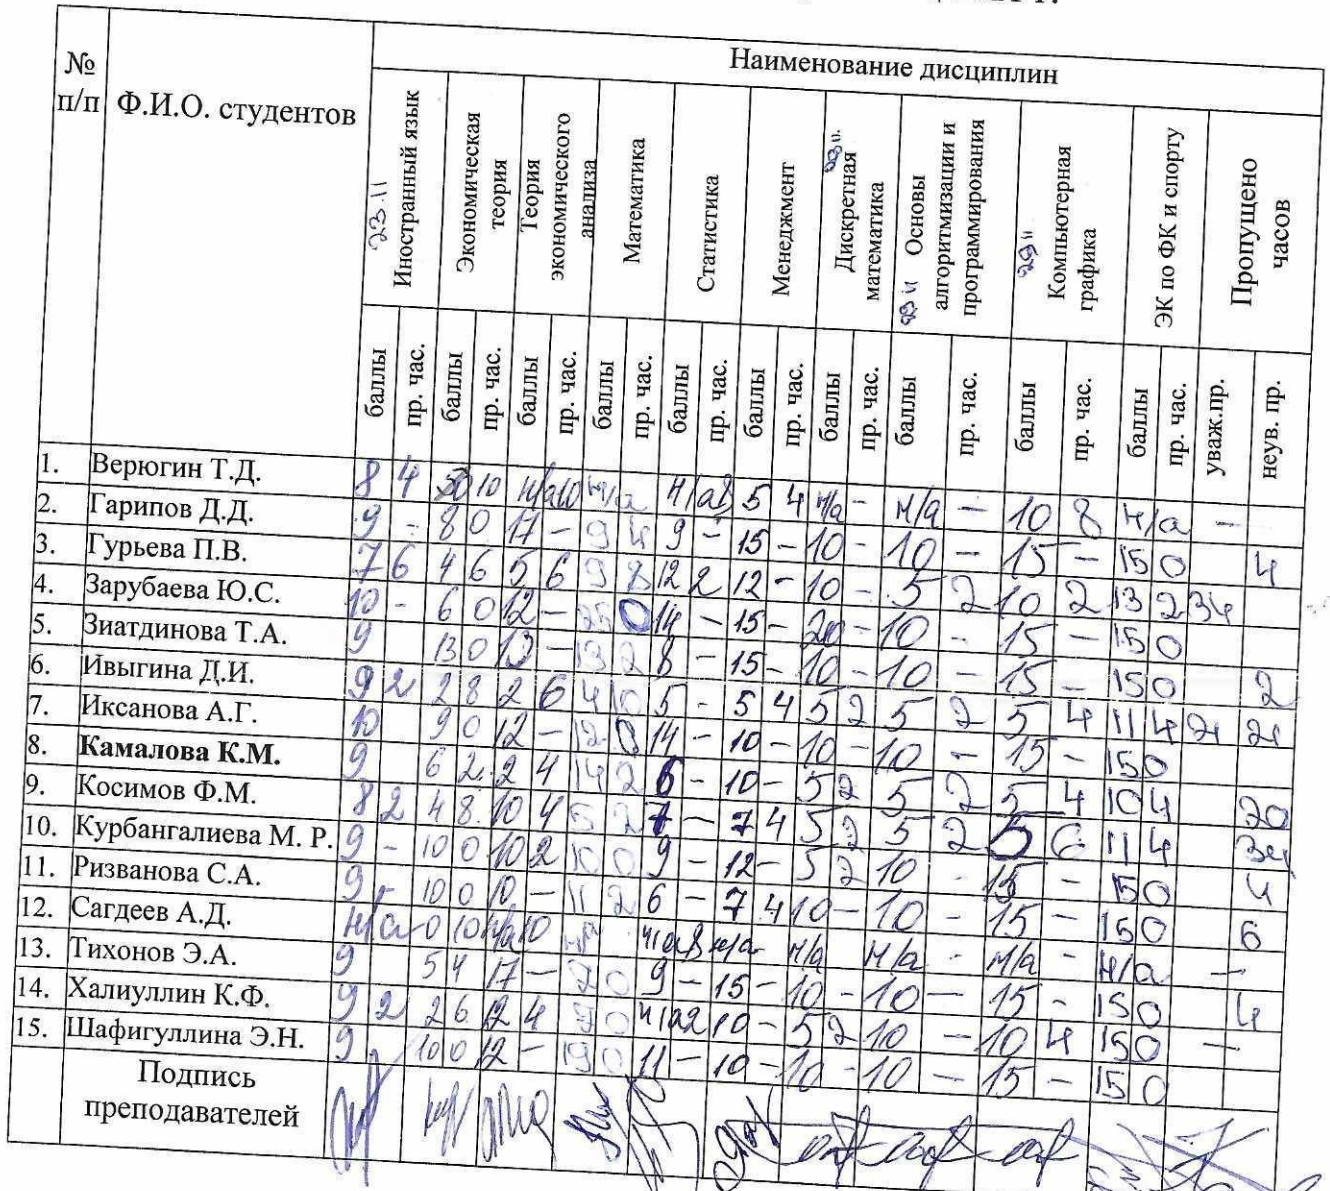 Наименование дисциплин
№ п/п
Ф.И.О. студентов
23.11 Иностранный язык
Экономическая теория
Теория экономического анализа
Математика
Статистика
Менеджмент
Дискретная математика
Основы алгоритмизации и программирования
Компьютерная графика
ЭК по ФК и спорту
Пропущено часов
баллы пр. час. баллы пр. час. баллы пр. час. баллы пр. час. баллы пр. час. баллы пр. час. баллы пр. час. баллы пр. час. баллы пр. час. баллы пр. час. уваж.пр. неув. пр.
1. Верюгин Т.Д. 8 4 10 н/а 10 н/а н/а 8 5 4 н/а - н/а - 10 8 н/а -
2. Гарипов Д.Д. 9 - 8 0 17 - 9 4 9 - 15 - 10 - 10 - 15 - 15 0 4
3. Гурьева П.В. 7 6 4 6 5 6 9 8 12 2 12 - 10 - 5 2 10 2 13 2 34
4. Зарубаева Ю.С. 10 - 6 0 12 - 25 0 14 - 15 - 20 - 10 - 15 - 15 0
5. Зиатдинова Т.А. 9 13 0 13 - 13 2 8 - 15 - 10 - 10 - 15 - 15 0 2
6. Ивыгина Д.И. 9 2 2 8 2 6 4 10 5 - 5 4 5 2 5 2 5 4 11 4
7. Иксанова А.Г. 10 9 0 12 - 12 0 14 - 10 - 10 - 10 - 15 - 15 0
8. Камалова К.М. 9 6 2 2 4 14 2 6 - 10 - 5 2 5 2 5 4 10 4 20
9. Косимов Ф.М. 8 2 4 8 10 4 5 2 7 - 7 4 5 2 5 2 5 6 11 4
10. Курбангалиева М. Р. 9 - 10 0 10 2 10 0 9 - 12 - 5 2 10 - 15 - 15 0 4
11. Ризванова С.А. 9 - 10 0 10 - 11 2 6 - 7 4 10 - 10 - 15 - 15 0 6
12. Сагдеев А.Д. н/а 0 10 н/а 10 н/а н/а 8 н/а н/а н/а - н/а - н/а -
13. Тихонов Э.А. 9 5 4 17 - 0 9 - 15 - 10 - 10 - 15 - 15 0 4
14. Халиуллин К.Ф. 9 2 2 6 12 4 9 0 н/а 2 10 - 5 2 10 - 10 4 15 0 -
15. Шафигуллина Э.Н. 9 10 0 12 - 19 0 11 - 10 - 10 - 10 - 15 - 15 0
Подпись
преподавателей